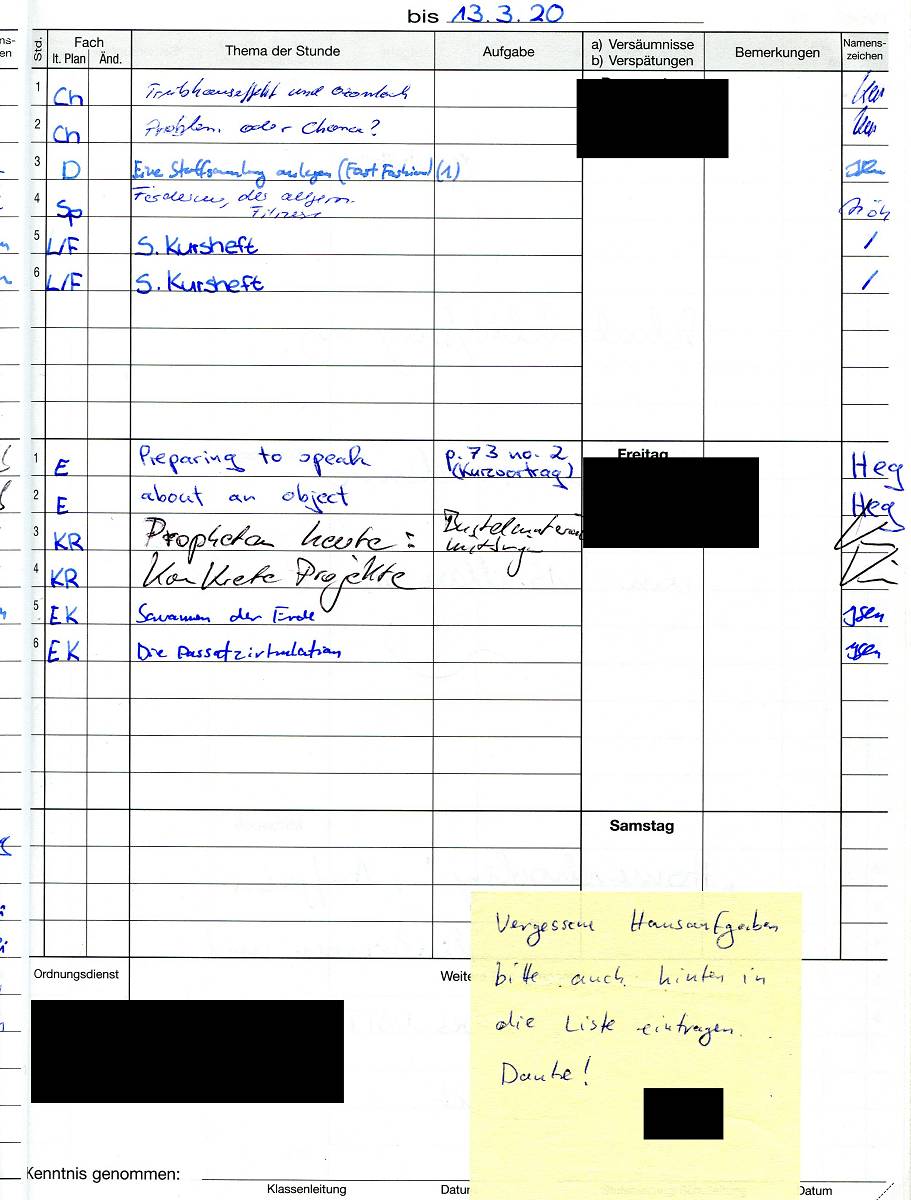 bis 13.3.20
Std. Fach Thema der Stunde Aufgabe a) Versäumnisse Bemerkungen Namens-
lt. Plan Änd. b) Verspätungen zeichen
1 Ch Treibhauseffekt und
2 Ch Problem oder Chance?
3 D Eine Stoffsammlung anlegen (Fast Fashion) (1) Isen
4 Sp Förderung der allgem.
Fitness
5 L/F S. Kursheft /
6 L/F S. Kursheft /
Freitag
1 E Preparing to speak p. 73 no. 2 Heg
(Kurzvortrag)
2 E about an object Heg
3 KR Propheten heute: Bastelmaterial
mitbringen
4 KR Konkrete Projekte
5 EK Savannen der Erde Isen
6 EK Die Passatzirkulation Isen
Samstag
Ordnungsdienst Weite
Vergessene Hausaufgaben
bitte auch hinten in
die Liste eintragen.
Danke!
Kenntnis genommen:
Klassenleitung Datum